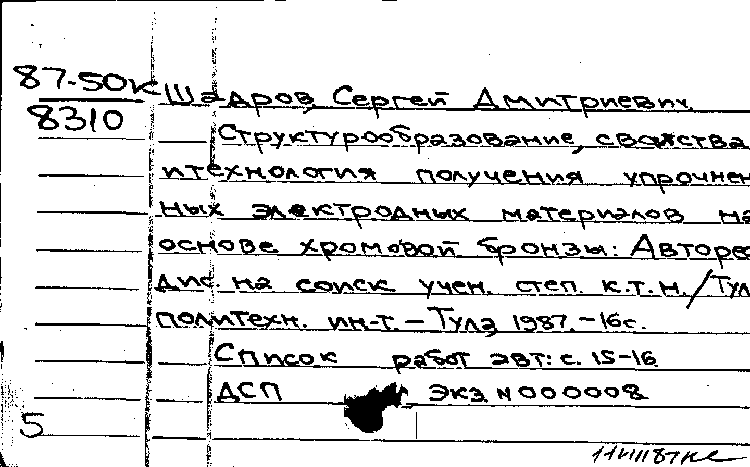 87-50К
8310
Шадров, Сергей Дмитриевич.
Структурообразование, свойства
и технология получения упрочнен-
ных электродных материалов на
основе хромовой бронзы: Авторе
дис. на соиск учен. степ. к.т.н. / Тул
политехн. ин-т. – Тула, 1987. – 16 с.
Список работ авт: с. 15-16
ДСП Экз N 000008
5